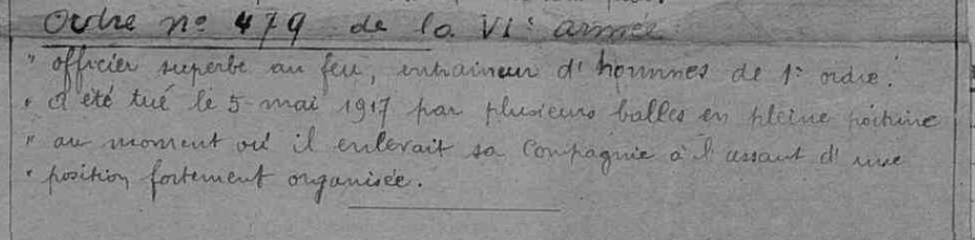 Ordre nº 479 de la VIe armée
" officier superbe au feu, entraineur d'hommes de 1e ordre.
" a été tué le 5 mai 1917 par plusieurs balles en pleine poitrine
" au moment où il enlevait sa compagnie à l'assaut d'une
" position fortement organisée.